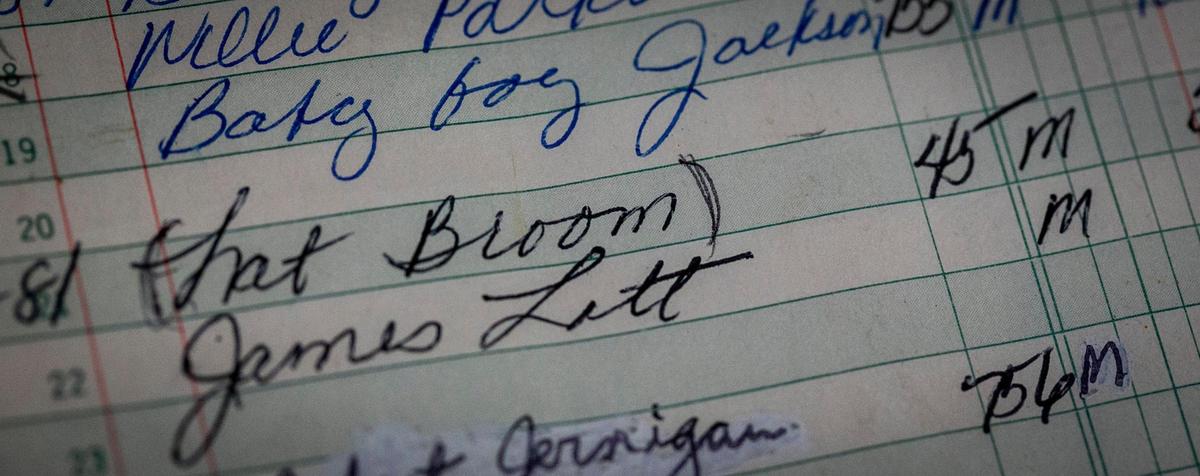 Nellie
Baby boy Jackson 55 m
19
45 m
20 (Pat Broom) m
81 James Litt
22 56 m
23 Jernigan